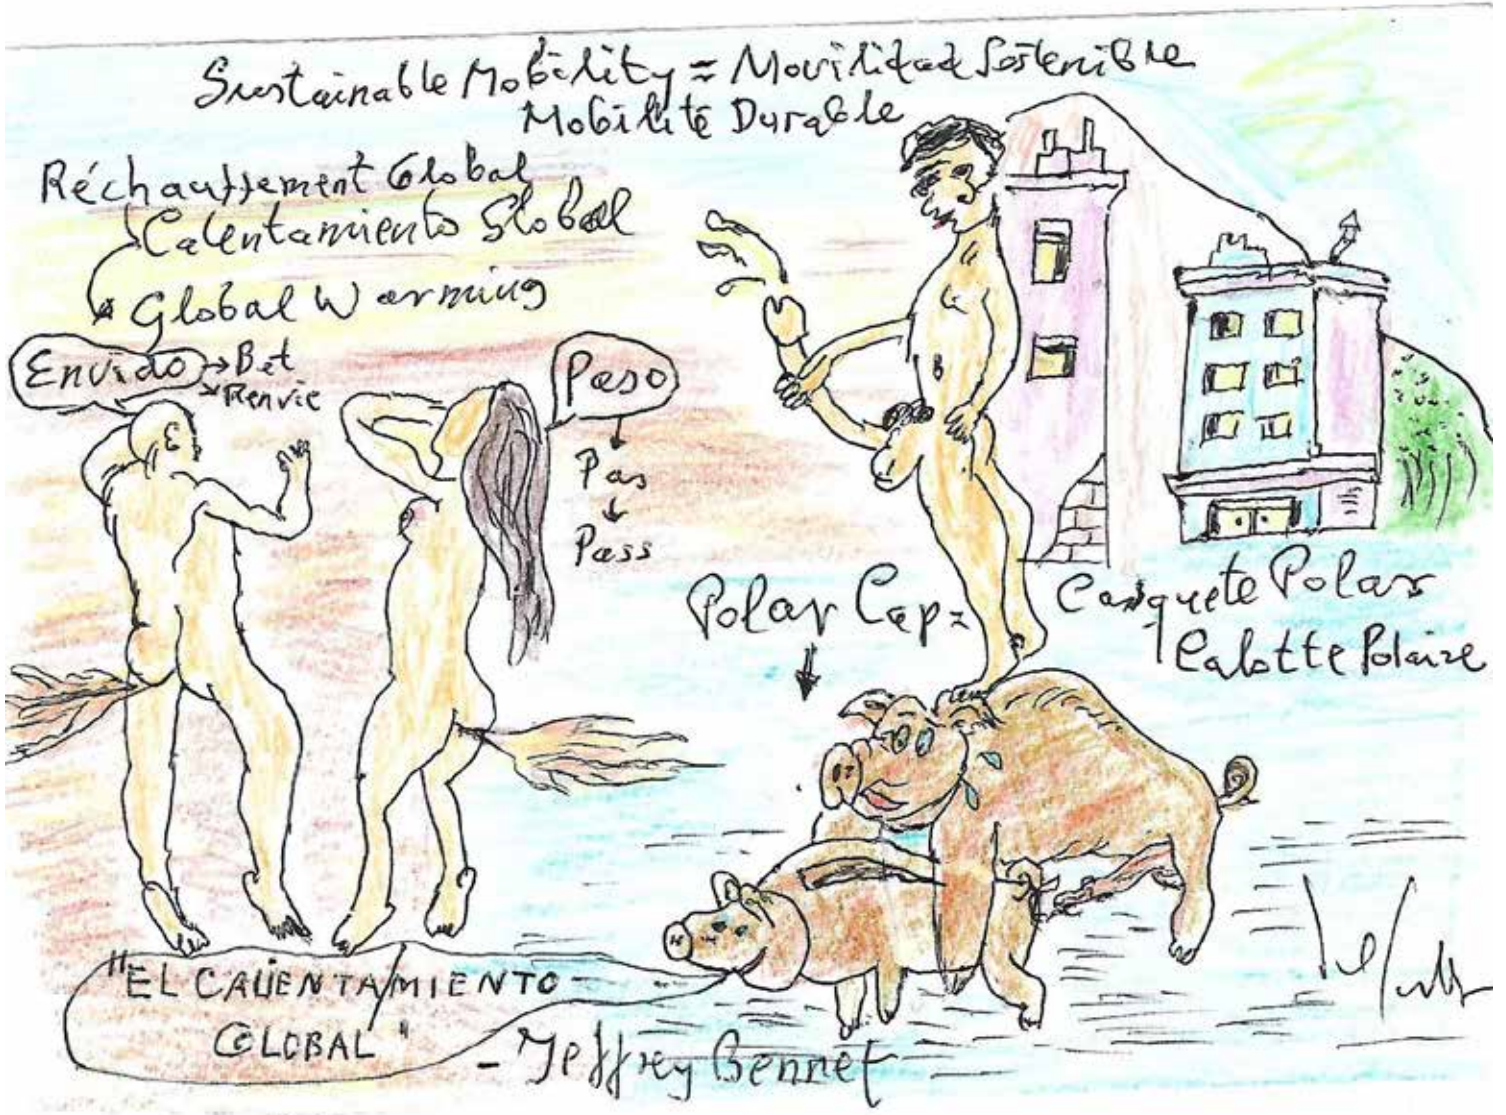 Sustainable Mobility = Movilidad Sostenible
Mobilité Durable
Réchauffement Global
Calentamiento Global
Global Warming
Envido → Bet
→ Renvie
Paso
↓
Pas
↓
Pass
Polar Cap =
Casquete Polar
Calotte Polaire
"EL CALIENTAMIENTO
GLOBAL"
- Jeffrey Bennet